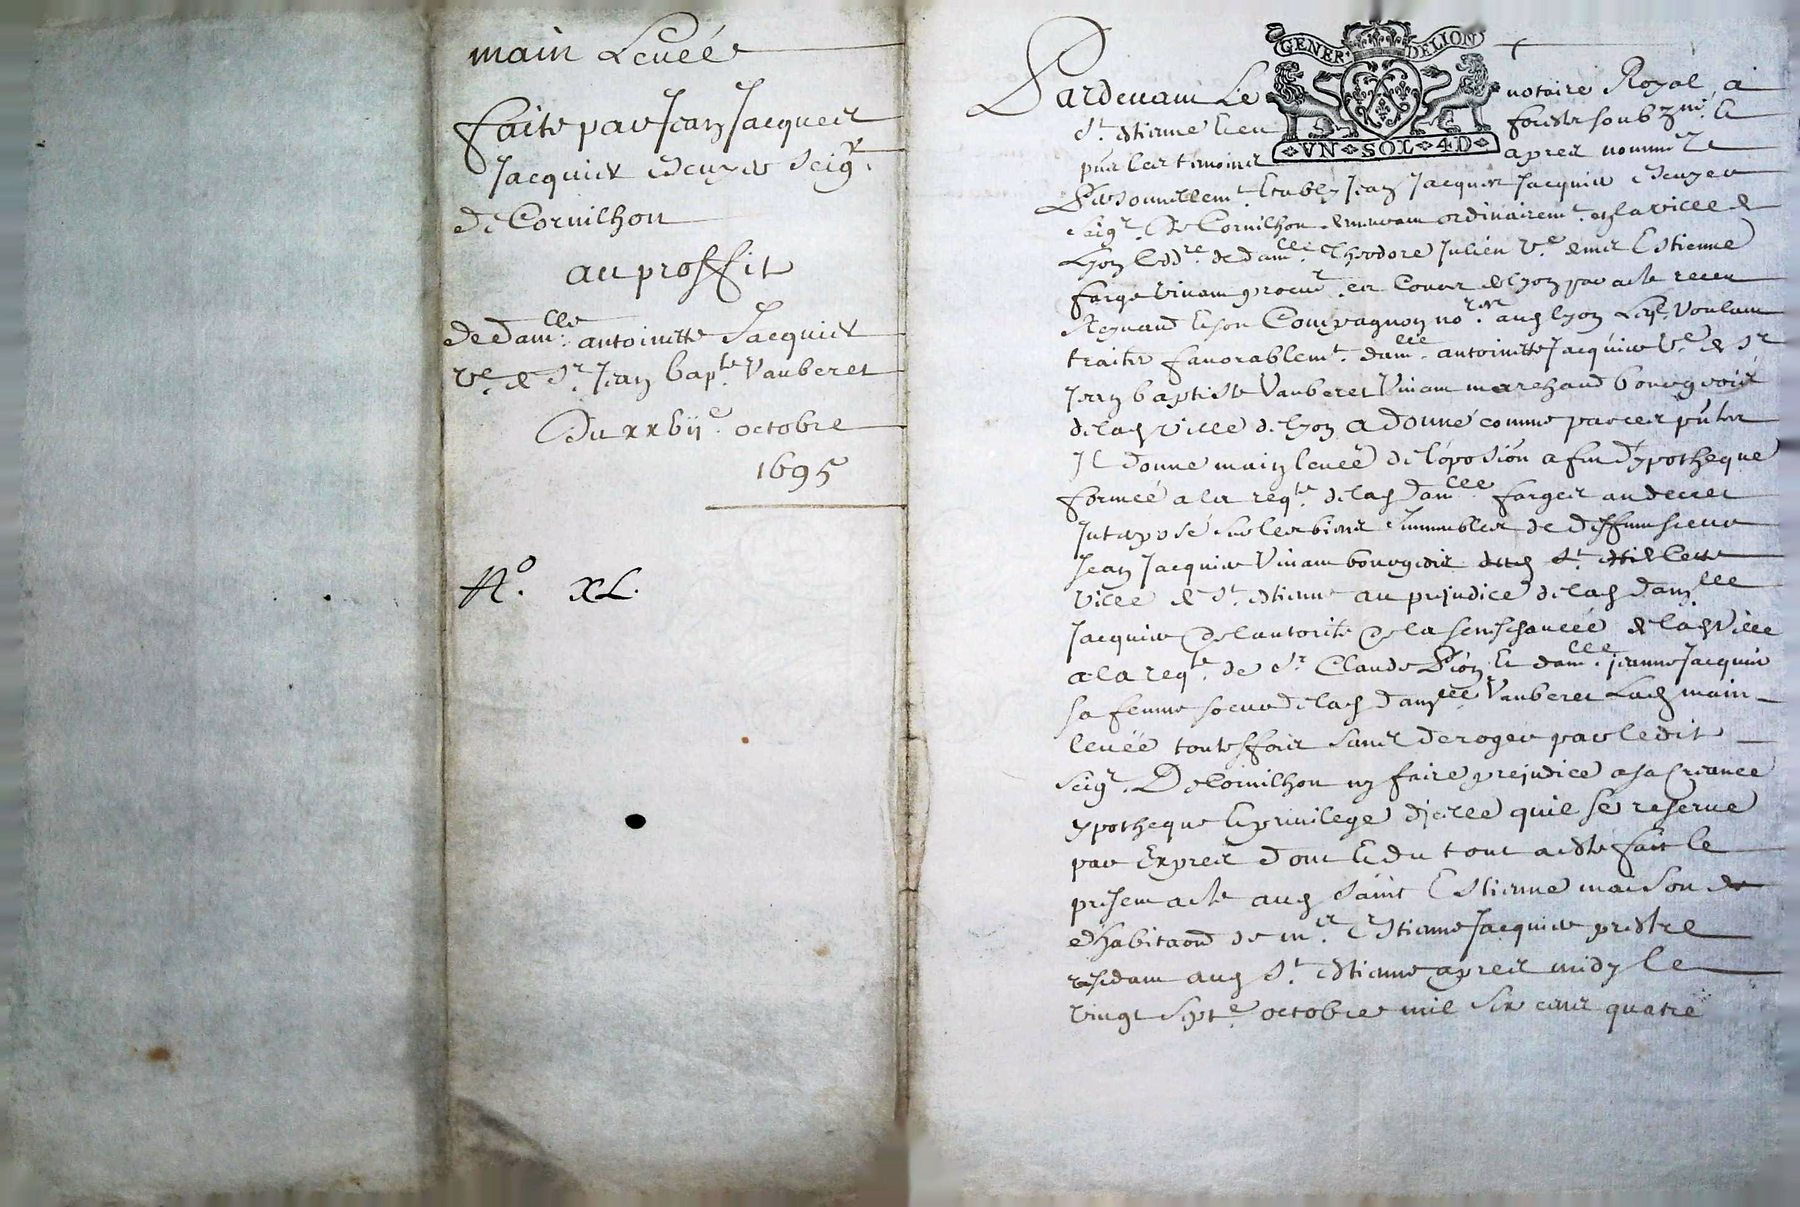 main Levée
faite par Jean Jacques
Jacquier Escuyer Seigr.
de Cornilhon
au proffit
de damlle. antoinette Jacquier
ve. de Sr. Jean bapte. Vauberet
Du xxvije. octobre
1695
No. XL.
GENER. DELION
VN SOL 4D
Pardevant Le notaire Royal a
St. Estienne en forestz soubzné. &
pnts les temoins apres nommés
Personnellemt. Estably Jean Jacques Jacquier Escuyer
seigr. De Cornilhon demeurant ordinairemt. en la ville de
Lyon de damlle. Theodore Julien ve. de mr Estienne
farge vivant procur. es Cours de Lyon par acte receu
Reynaud & son Compagnon nores. aud Lyon Leql. voulant
traiter favorablemt. damlle. antoinette Jacquier ve. de Sr
Jean baptiste Vauberet Vivant marchand bourgeois
de lad Ville de Lyon a donné comme par ces pntes
Il donne mainlevée de l'oposion afin d'ypotheque
formée a la reqte. de lad damlle. farges au decret
Interposé sur les biens Immeubles de deffunt sieur
Jean Jacquier Vivant bourgeois
ville de St. Estienne au prejudice de lad damlle
Jacquier de l'autorité de la seneschaucée de lad Ville
a la reqte. de Sr. Claude Pion & damlle. jeanne Jacquier
sa femme soeur de lad damlle Vauberet Lad main-
levée touteffois sans deroger par ledit
seigr. De Cornilhon ny faire prejudice a sa Creance
ypotheque & privilege d'icelle quil se reserve
par Exprés dont & du tout a esté fait le
present acte aud Saint Estienne maison
d'habitaon de mre. Estienne Jacquier prestre
residant aud St. Estienne apres midy le
vingt septe. octobre mil six cent quatre